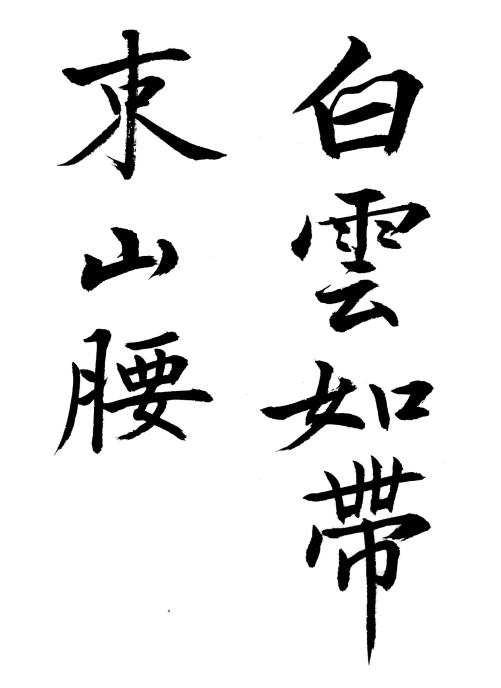 白雲如帶
束山腰